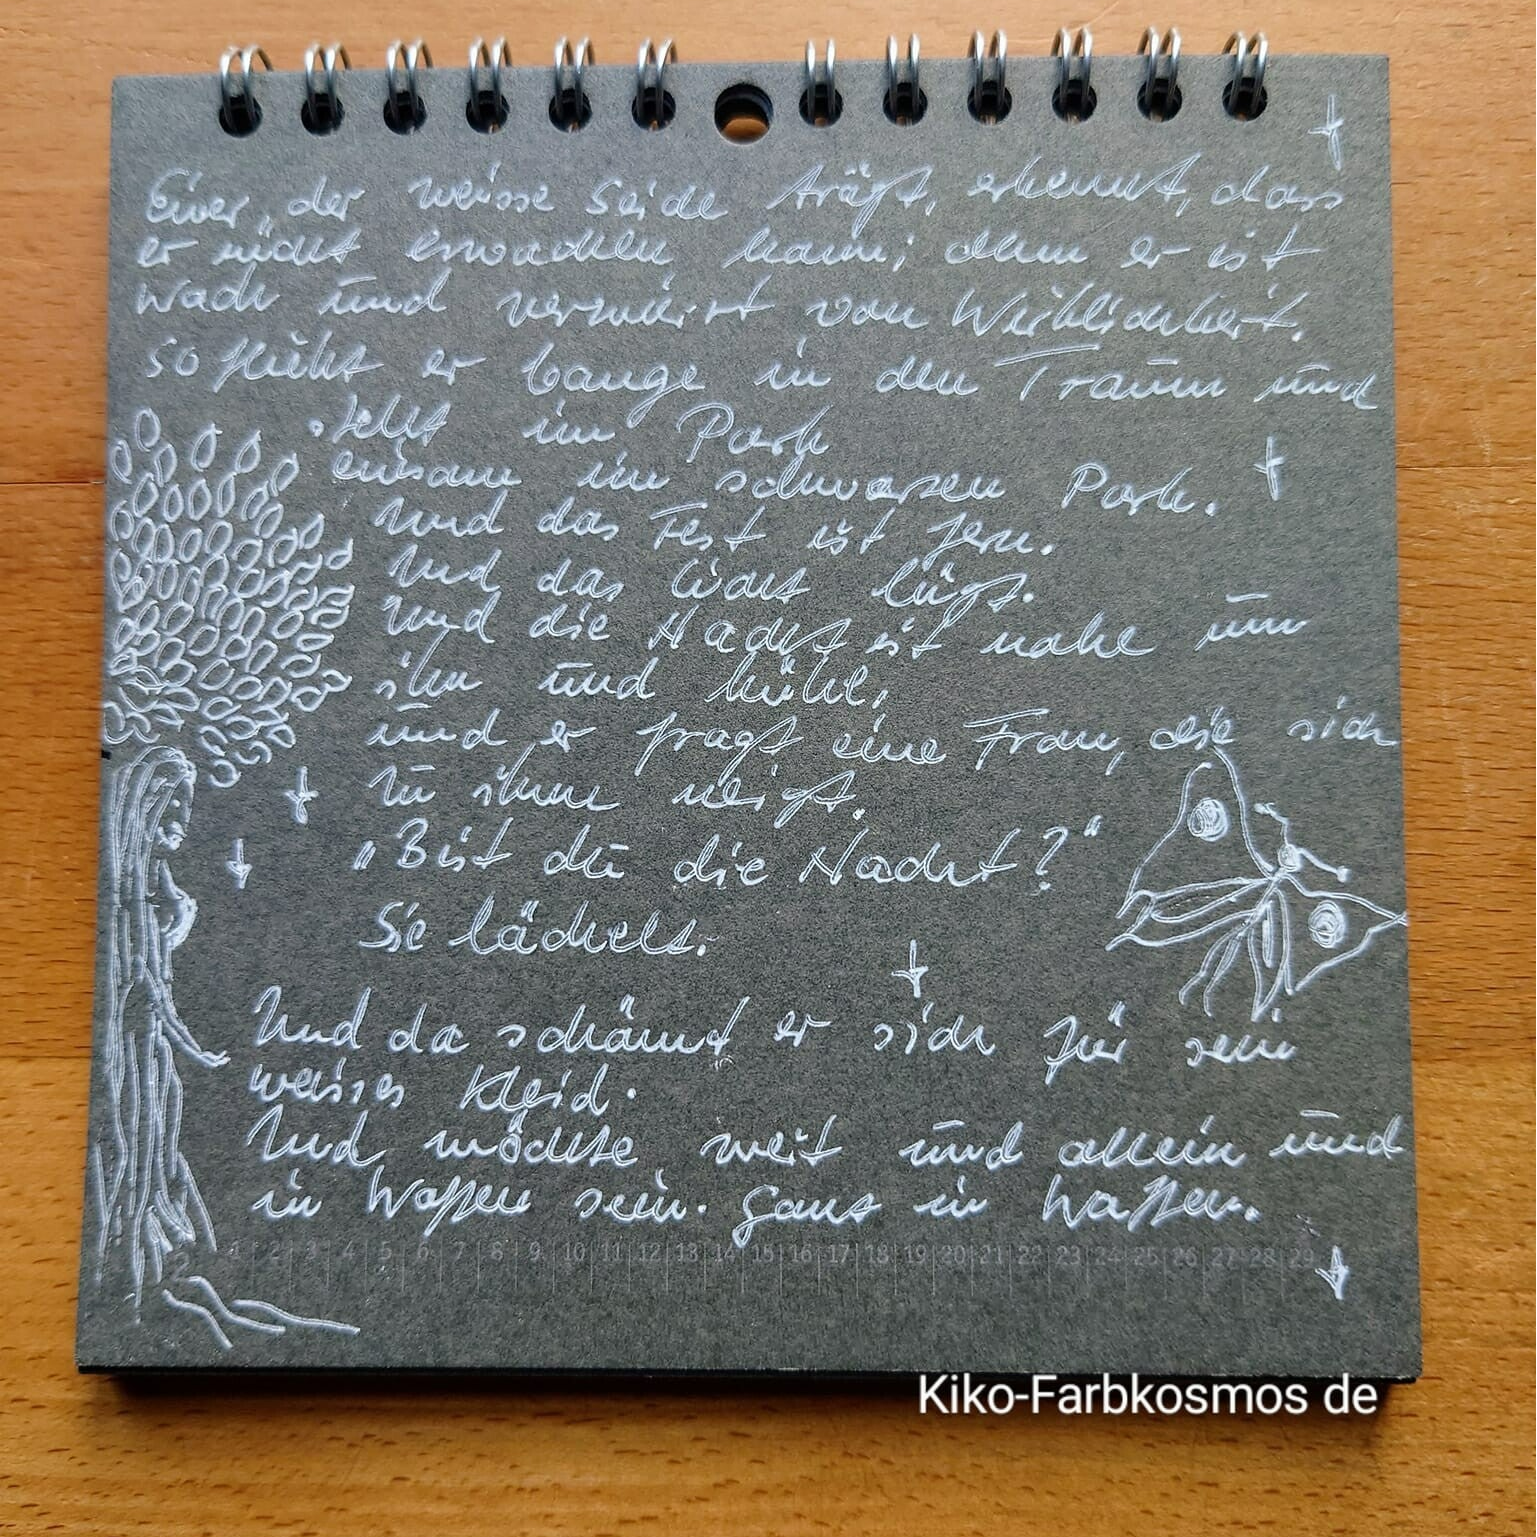 Einer, der weisse Seide trägt, erkennt, dass
er nicht erwachen kann; denn er ist
wach und verwirrt von Wirklichkeit.
So flieht er bange in den Traum und
steht im Park
einsam im schwarzen Park.
Und das Fest ist fern.
Und das Licht lügt.
Und die Nacht ist nahe um
ihn und kühl.
und er fragt eine Frau, die sich
zu ihm neigt.
"Bist du die Nacht?"
Sie lächelt.
Und da schämt er sich für sein
weisses Kleid.
Und möchte weit und allein und
in Waffen sein. Ganz in Waffen.
1 2 3 4 5 6 7 8 9 10 11 12 13 14 15 16 17 18 19 20 21 22 23 24 25 26 27 28 29
Kiko-Farbkosmos de